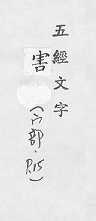 五經文字
害
(宀部·P.15)